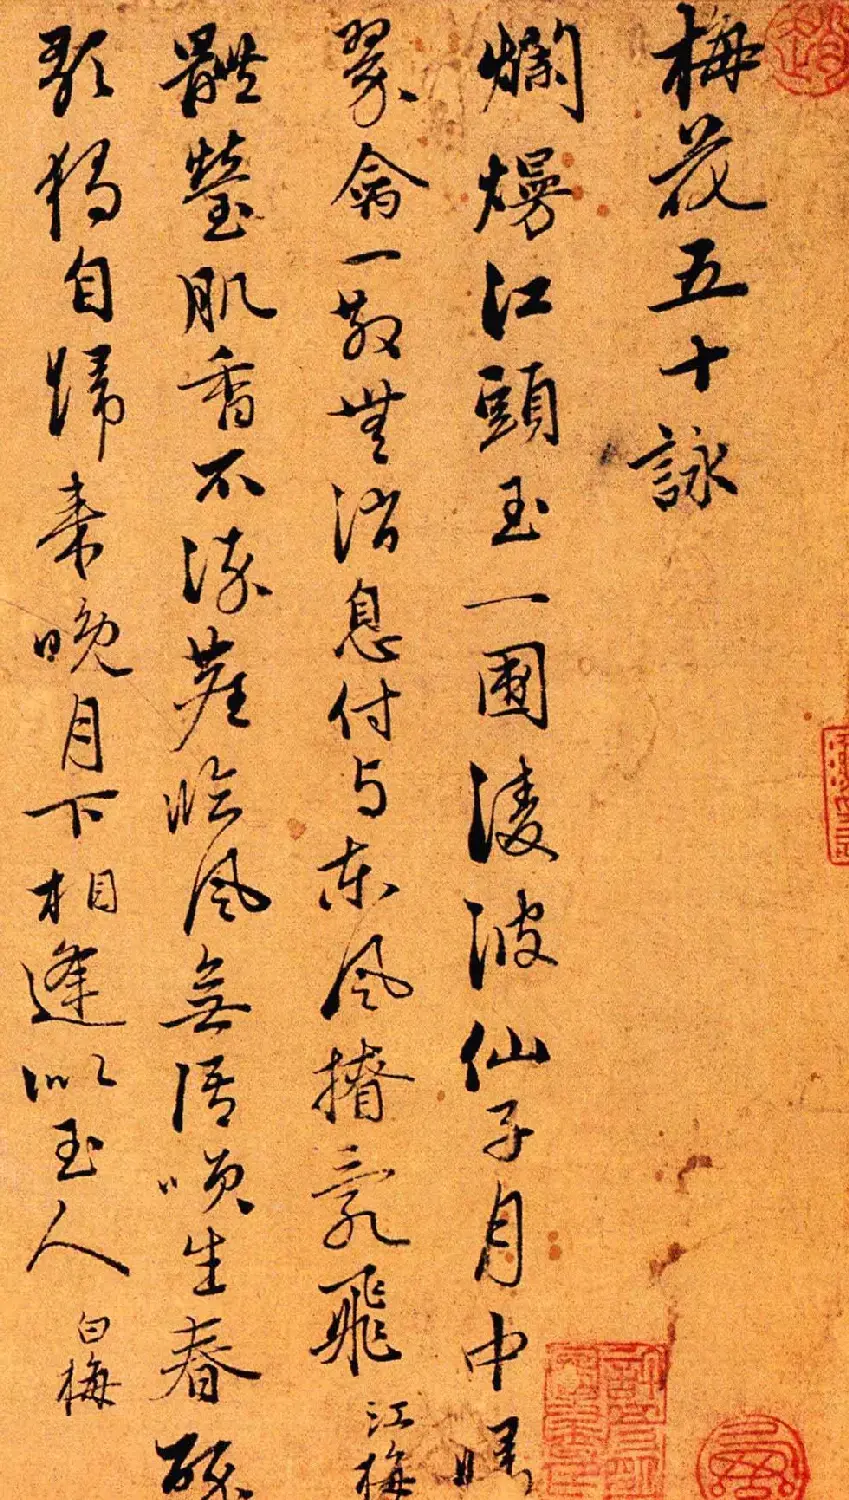 梅花五十詠
爛熳江頭玉一圍淩波仙子月中歸
翠禽一散無消息付与東風撩亂飛 江梅
體瑩肌香不涴塵臨風無語咲生春醉
歌獨自歸來晚月下相逢似玉人 白梅